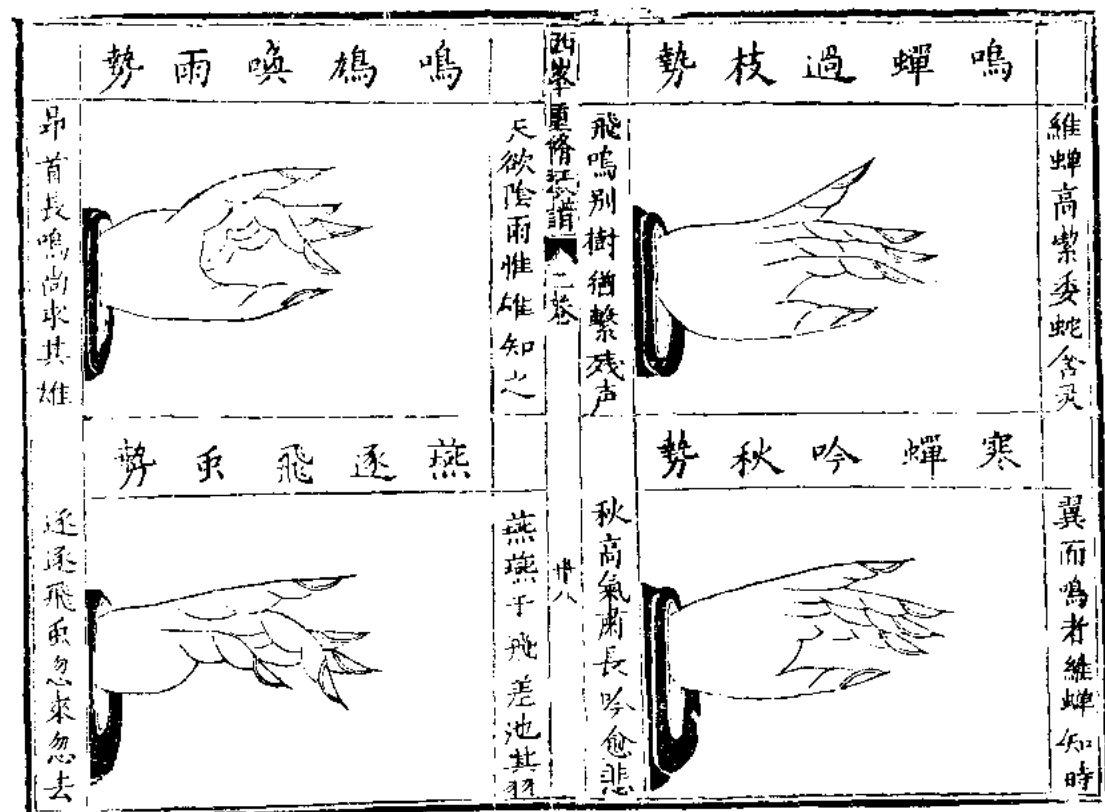 鳴蟬過枝勢
維蟬高潔委蛇含灵
飛鳴別樹猶繫残声
寒蟬吟秋勢
翼而鳴者維蟬知時
秋高氣肅長吟愈悲
西峯重脩琴譜 二卷
廿八
鳴鳩喚雨勢
天欲陰雨惟雄知之
昂首長鳴尚求其雄
燕逐飛虫勢
燕燕于飛差池其羽
逐逐飛虫忽來忽去